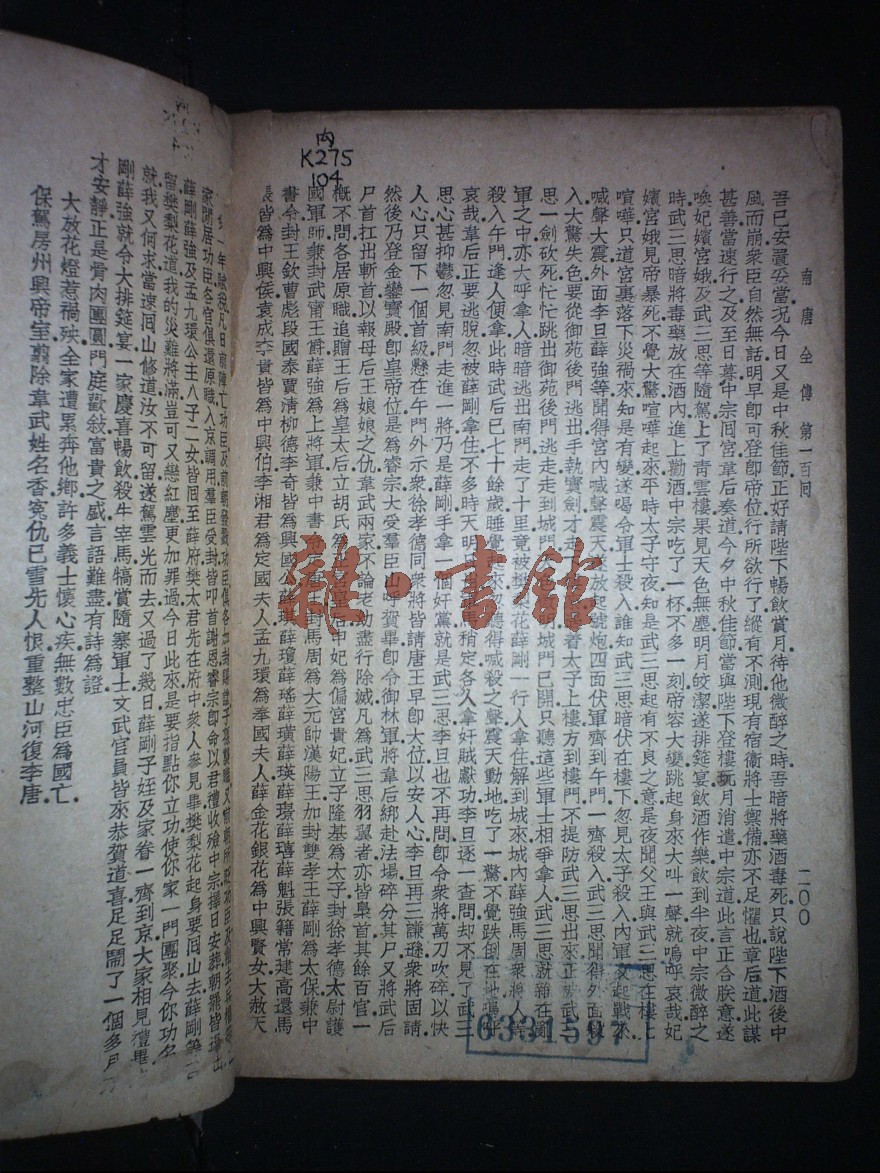 內
K275
104
南唐全傳 第一百回
二〇〇
吾已安置妥當況今日又是中秋佳節正好請陛下暢飲賞月待他微醉之時吾暗將藥酒毒死只說陛下酒後中
風而崩衆臣自然無話明早卽可登卽帝位行所欲行了縱有不測現有宿衞將士禦備亦不足懼也章后道此謀
甚善當速行之及至日暮中宗囘宮韋后奏道今夕中秋佳節當與陛下登樓玩月消遣中宗道此言正合朕意遂
喚妃嬪宮娥及武三思等隨駕上了青雲樓果見天色無塵明月皎潔遂排筵宴飲酒作樂飲到半夜中宗微醉之
時武三思暗將毒藥放在酒內進上勸酒中宗吃了一杯不多一刻帝容大變跳起身來大叫一聲就嗚呼哀哉妃
嬪宮娥見帝暴死不覺大驚喧嘩起來平時太子守夜知是武三思起有不良之意是夜聞父王與武三思在樓上
喧嘩只道宮裏落下災禍來知是有變遂喝令軍士殺入誰知武三思暗伏在樓下忽見太子殺入內軍 起戰來
喊聲大震外面李旦薛強等聞得宮內喊聲震天 放起號炮四面伏軍齊到午門一齊殺入武三思聞得外面
入大驚失色要從御苑後門逃出手執寶劍才走 着太子上樓方到樓門不提防武三思出來正 武三
思一劍砍死忙忙跳出御苑後門逃走走到城門 城門已開只聽這些軍士相爭拿人武三思就雜在
軍之中亦大呼拿人暗暗逃出南門走了十里竟被樊 花薛剛一行人拿住解到城來城內薛強馬周衆將人
殺入午門逢人便拿此時武后已七十餘歲睡覺 來忽聽得喊殺之聲震天動地吃了一驚不覺跌倒在地嗚呼
哀哉韋后正要逃脫忽被薛剛拿住不多時天明 馬稍定各人拿奸賊獻功李旦逐一查問却不見了武三
思心甚抑鬱忽見南門走進一將乃是薛剛手拿一 好黨就是武三思李旦也不再問卽令衆將萬刀吹碎以快
人心只留下一個首級懸在午門外示衆徐孝德同衆將皆請唐王早卽大位以安人心李旦再三謙遜衆將固請
然後乃登金鑾寶殿卽皇帝位是爲睿宗大受羣臣山呼賀畢卽令御林軍將韋后綁赴法場碎分其尸又將武后
尸首扛出斬首以報母后王娘娘之仇韋武兩家不論老幼盡行除滅凡爲武三思羽翼者亦皆梟首其餘百官一
概不問各居原職追贈王后爲皇太后立胡氏爲 皇后申妃爲偏宮貴妃立子隆基爲太子封徐孝德太尉護
國軍師兼封武甯王爵薛強爲上將軍兼中書 封馬周爲大元帥漢陽王加封雙孝王薛剛爲太保兼中
書令封王欽曹彪段國泰賈清柳德李奇皆爲興國 薛琪薛瓊薛瑤薛璜薛瑛薛璟薛璔薛魁張籍常建高還馬
張皆爲中興侯袁成李貴皆爲中興伯李湘君爲定國夫人孟九環爲奉國夫人薛金花銀花爲中興賢女大赦天
雜·書館
6331597
家閒居功臣各官俱還原職入京調用羣臣受封皆叩首謝恩睿宗卽命以君禮收殮中宗擇日安葬朝罷皆退出
薛剛薛強及孟九環公主八子二女皆囘至薛府樊太君先在府中衆人參見畢樊梨花起身要囘山去薛剛等
留樊梨花道我的災難將滿豈可又戀紅塵更加罪過今日此來是要指點你立功使你家一門團聚今你功名
就我又何求當速囘山修道汝不可留遂駕雲光而去又過了幾日薛剛子姪及家眷一齊到京大家相見禮畢
剛薛強就令大排筵宴一家慶喜暢飲殺牛宰馬犒賞隨寨軍士文武官員皆來恭賀道喜足足鬧了一個多月方
才安靜正是骨肉團圓門庭歡敍富貴之盛言語難盡有詩爲證
大放花燈惹禍殃全家遭累奔他鄉許多義士懷心疾無數忠臣爲國亡
保駕房州興帝室翦除韋武姓名香冤仇已雪先人恨重整山河復李唐